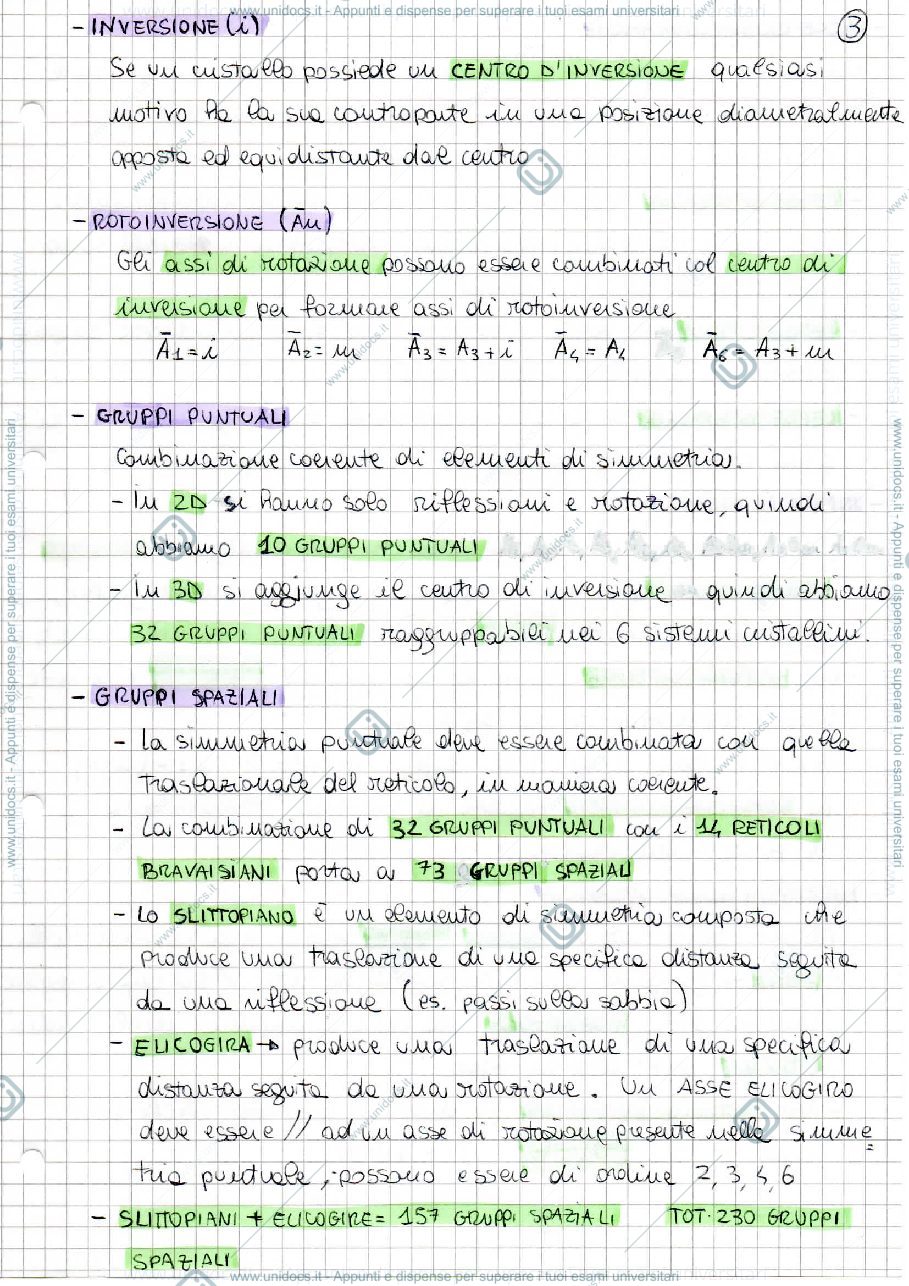 www.unidocs.it - Appunti e dispense per superare i tuoi esami universitari
- INVERSIONE (i)
3
Se un cristallo possiede un CENTRO D'INVERSIONE qualsiasi
motivo ha la sua controparte in una posizione diametralmente
opposta ed equidistante dal centro
- ROTOINVERSIONE (Ān)
Gli assi di rotazione possono essere combinati col centro di
inversione per formare assi di rotoinversione
Ā1 = i Ā2 = m Ā3 = A3 + i Ā4 = A4 Ā6 = A3 + m
- GRUPPI PUNTUALI
Combinazione coerente di elementi di simmetria.
- In 2D si hanno solo riflessioni e rotazione, quindi
abbiamo 10 GRUPPI PUNTUALI
- In 3D si aggiunge il centro di inversione quindi abbiamo
32 GRUPPI PUNTUALI raggruppabili nei 6 sistemi cristallini.
- GRUPPI SPAZIALI
- La simmetria puntuale deve essere combinata con quella
traslazionale del reticolo, in maniera coerente.
- La combinazione di 32 GRUPPI PUNTUALI con i 14 RETICOLI
BRAVAISIANI porta a 73 GRUPPI SPAZIALI
- Lo SLITTOPIANO è un elemento di simmetria composta che
produce una traslazione di una specifica distanza seguita
da una riflessione (es. passi sulla sabbia)
- ELICOGIRA → produce una traslazione di una specifica
distanza seguita da una rotazione. Un ASSE ELICOGIRO
deve essere // ad un asse di rotazione presente nella simme
tria puntuale, possono essere di ordine 2, 3, 4, 6
- SLITTOPIANI + ELICOGIRE = 157 GRUPPI SPAZIALI TOT. 230 GRUPPI
SPAZIALI
www.unidocs.it - Appunti e dispense per superare i tuoi esami universitari
www.unidocs.it - Appunti e dispense per superare i tuoi esami universitari
www.unidocs.it - Appunti e dispense per superare i tuoi esami universitari